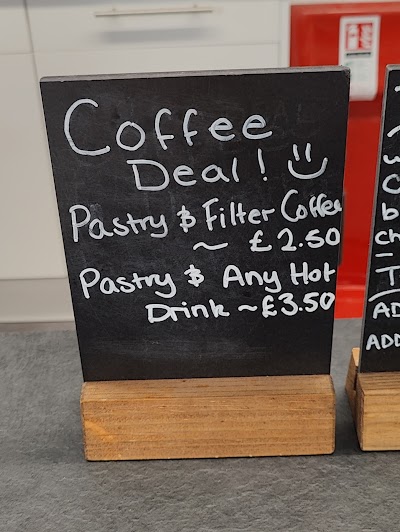 Coffee
Deal! :)
Pastry & Filter Coffee
~ £2.50
Pastry & Any Hot
Drink ~ £3.50